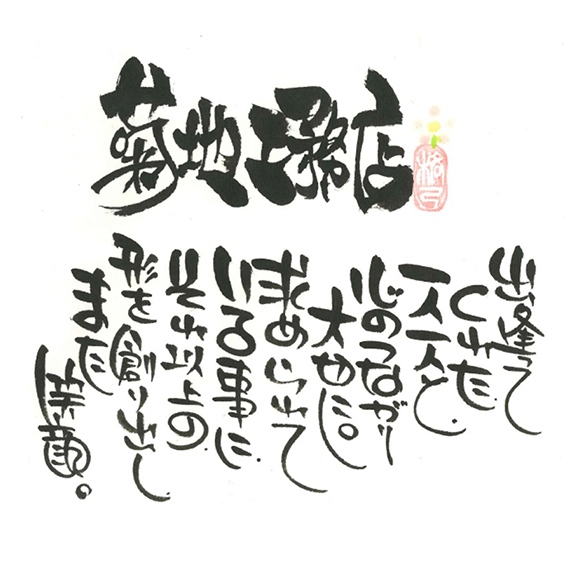 菊地工務店
出逢って
くれた
一人一人と
心のつながり
大切に。
求められて
いる事に
それ以上の
形を創り出し
また
笑顔。